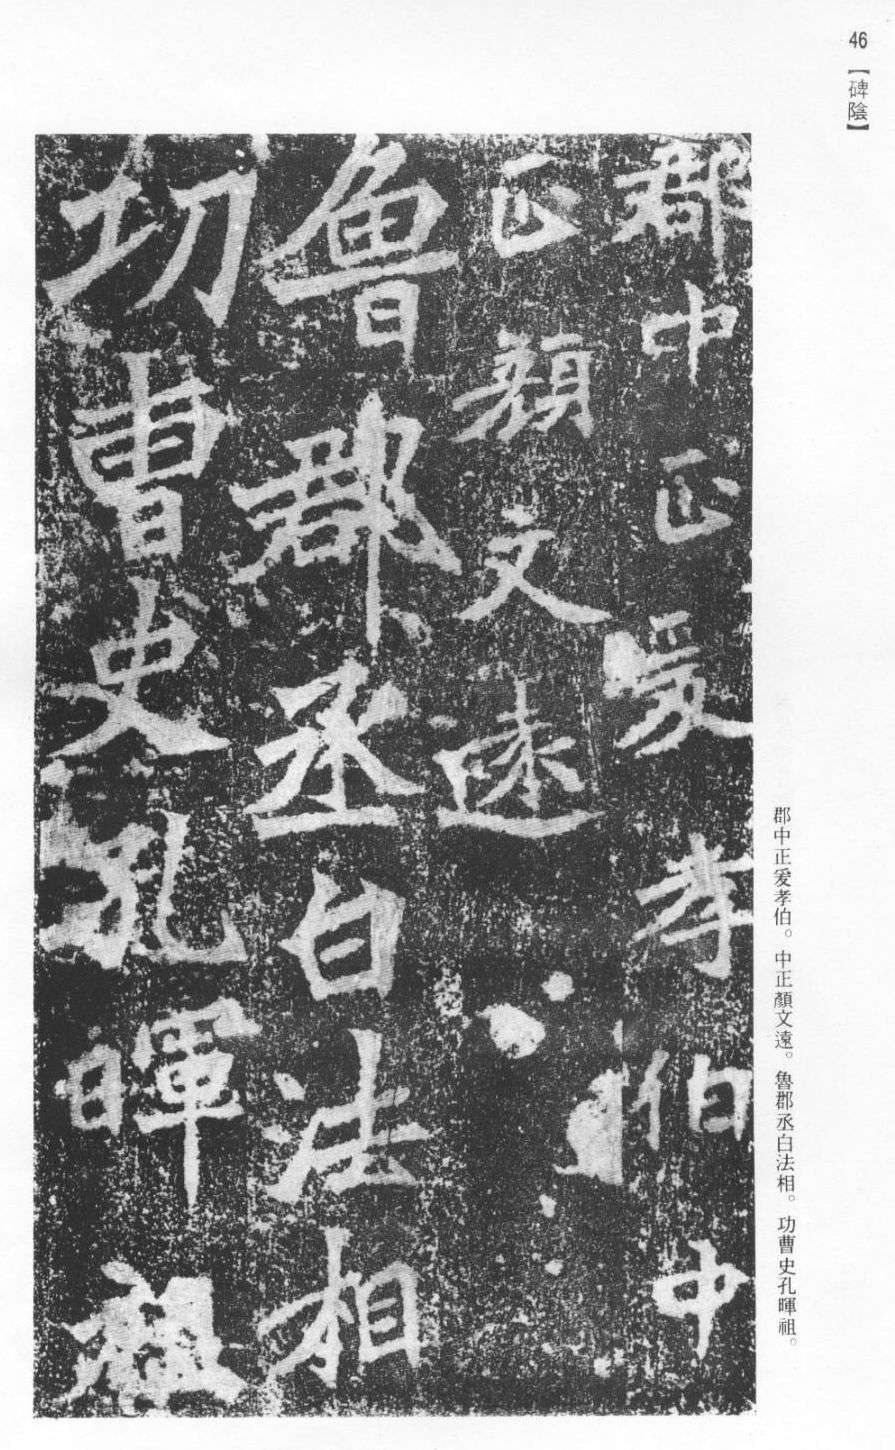 46
【碑陰】
郡中正爰孝伯中
正顏文遠
魯郡丞白法相
功曹史孔暉祖
郡中正爰孝伯。中正顏文遠。魯郡丞白法相。功曹史孔暉祖。